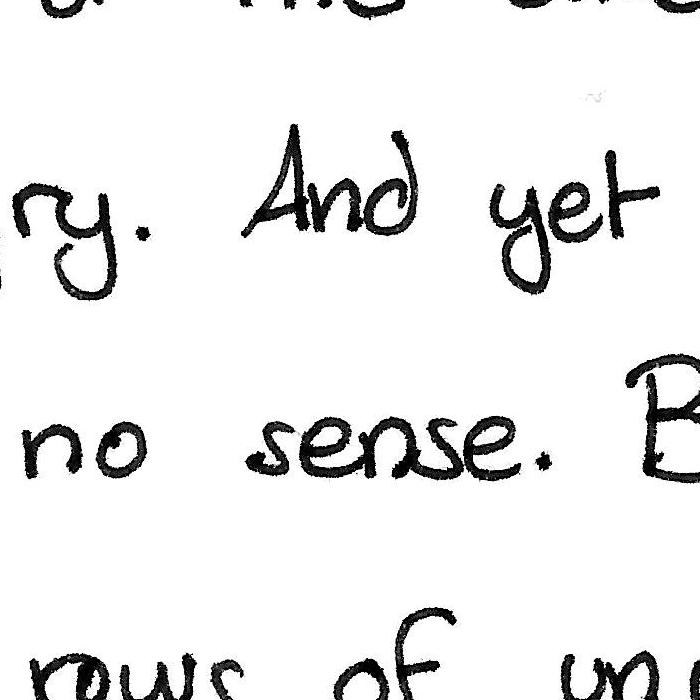 ry. And yet
no sense. B
rows of un